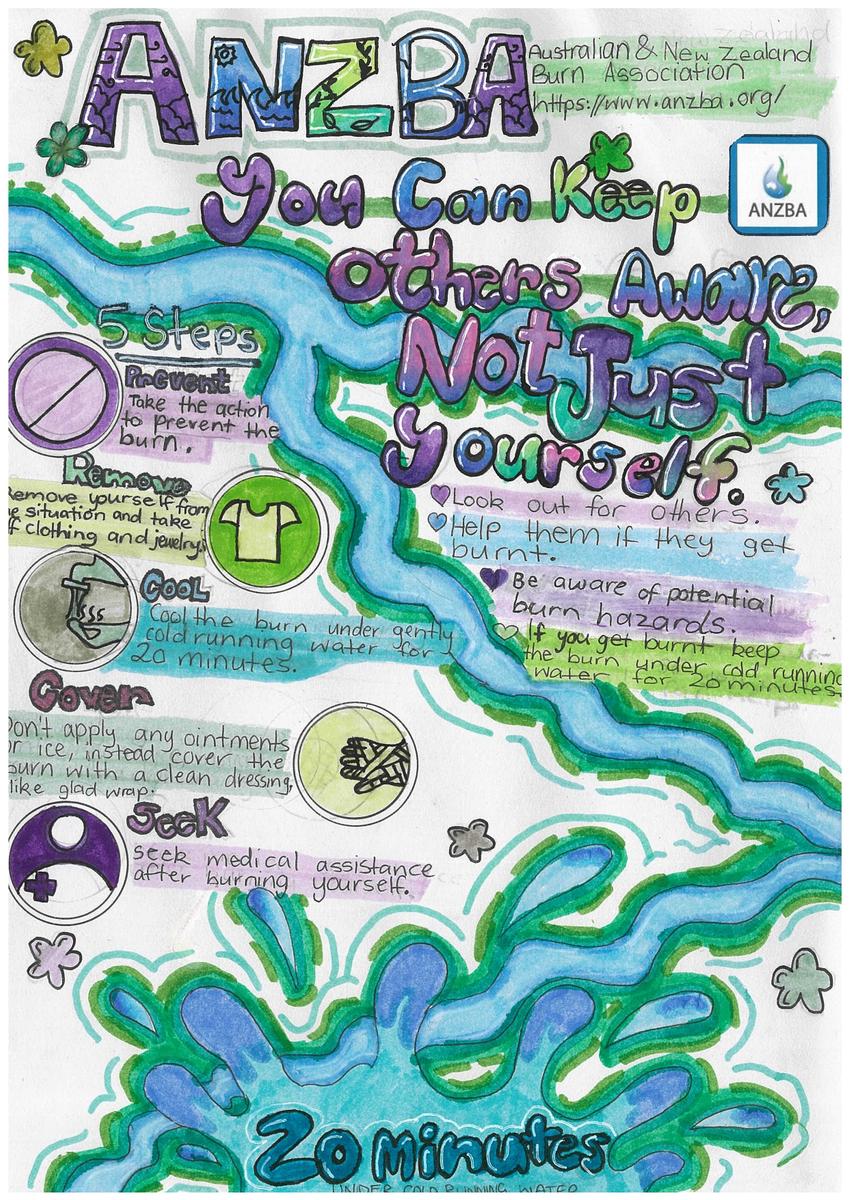 ANZBA
Australian & New Zealand
Burn Association
https://www.anzba.org/
ANZBA
You Can Keep
Others Aware,
Not Just
yourself.
5 Steps
Prevent
Take the action
to prevent the
burn.
Remove
Remove yourself from
situation and take
clothing and jewelry.
Cool
Cool the burn under gently
cold running water for
20 minutes.
Cover
Don't apply any ointments
or ice, instead cover the
burn with a clean dressing,
like glad wrap.
Seek
seek medical assistance
after burning yourself.
Look out for others.
Help them if they get
burnt.
Be aware of potential
burn hazards.
If you get burnt keep
the burn under cold running
water for 20 minutes.
20 minutes
UNDER COLD RUNNING WATER